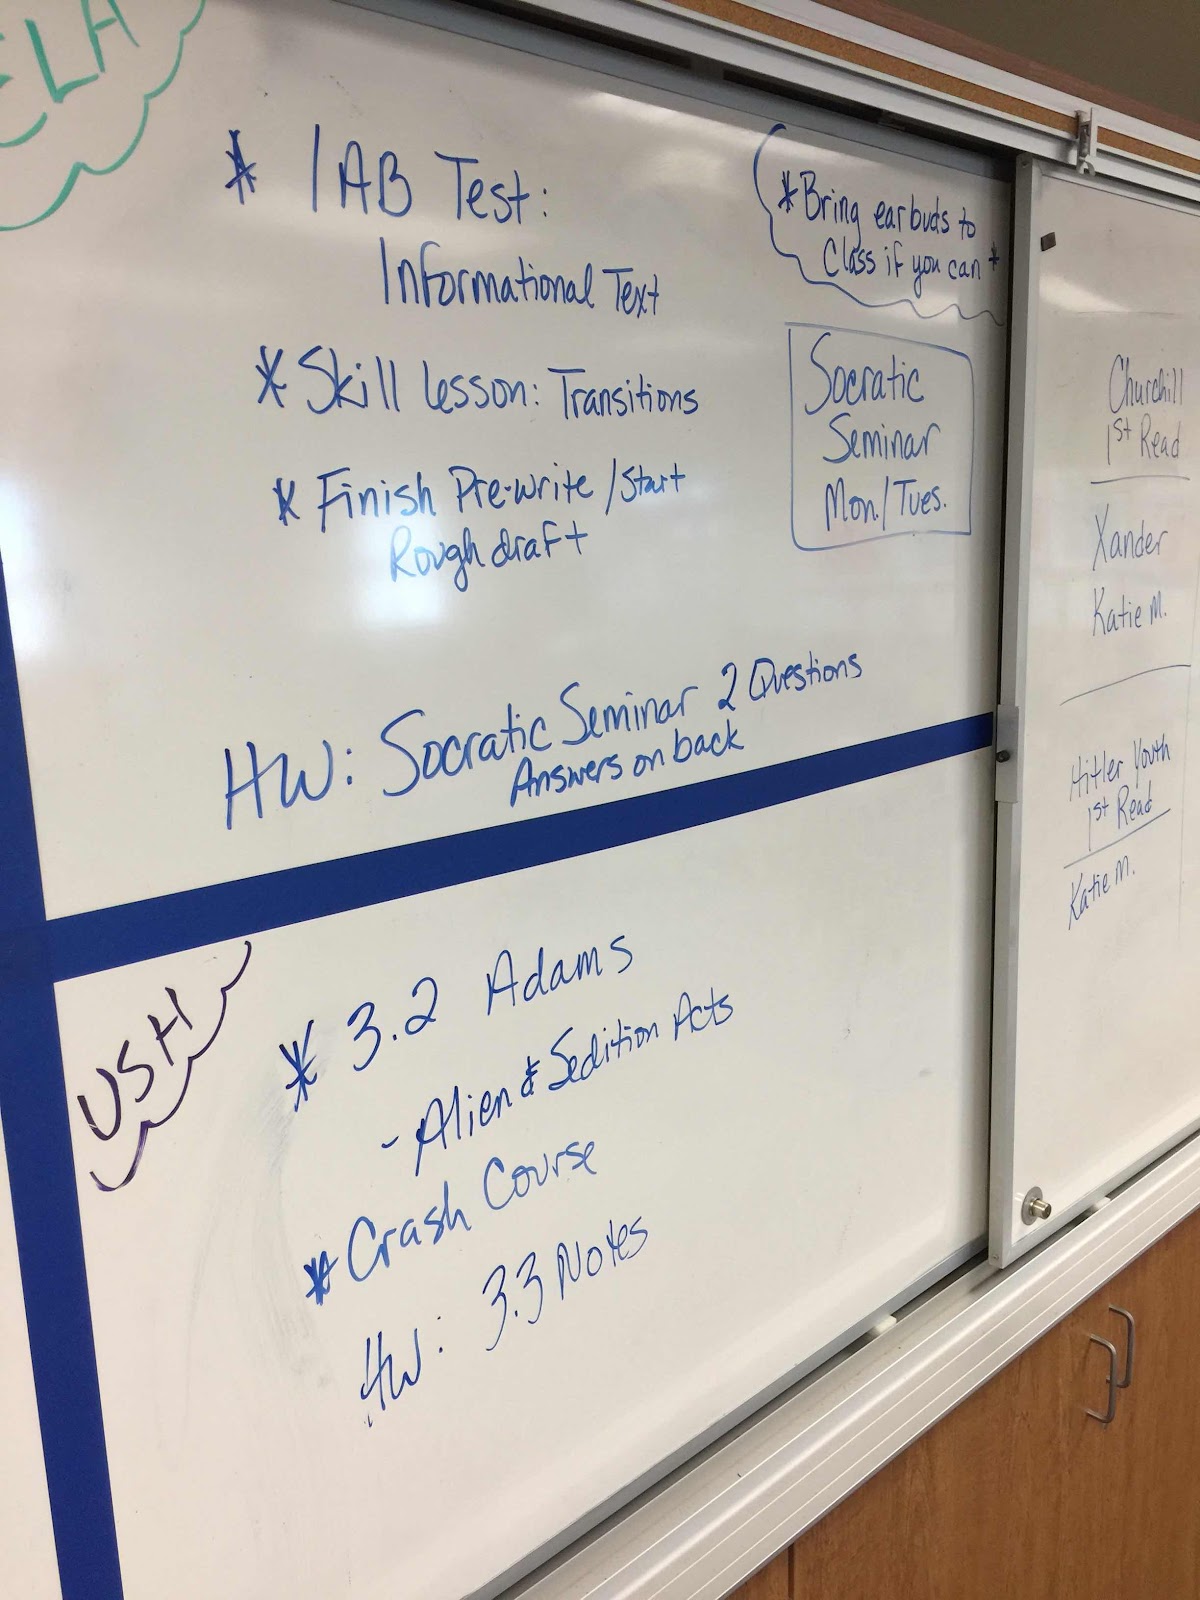 ELA
* IAB Test:
Informational Text
* Skill lesson: Transitions
* Finish Pre-write / Start
Rough draft
HW: Socratic Seminar 2 Questions
Answers on back
* Bring earbuds to
Class if you can *
Socratic
Seminar
Mon./Tues.
USH
* 3.2 Adams
- Alien & Sedition Acts
* Crash Course
HW: 3.3 Notes
Churchill
1st Read
Xander
Katie M.
Hitler Youth
1st Read
Katie M.